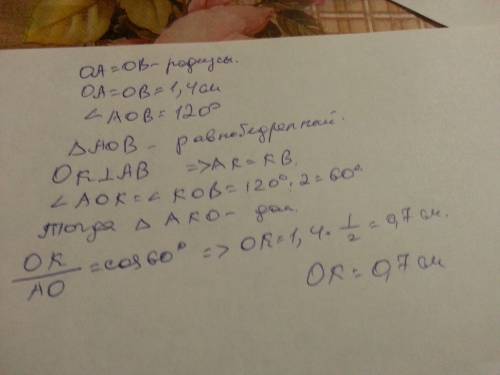 OA=OB- радиусы.
OA=OB=1,4см
∠AOB=120°
△AOB- равнобедренный.
OK⊥AB =>AK=KB.
∠AOK=∠KOB=120°:2=60°
Тогда △AKO-
OK/AO=cos60° => OK=1,4·1/2=0,7см.
OK=0,7см